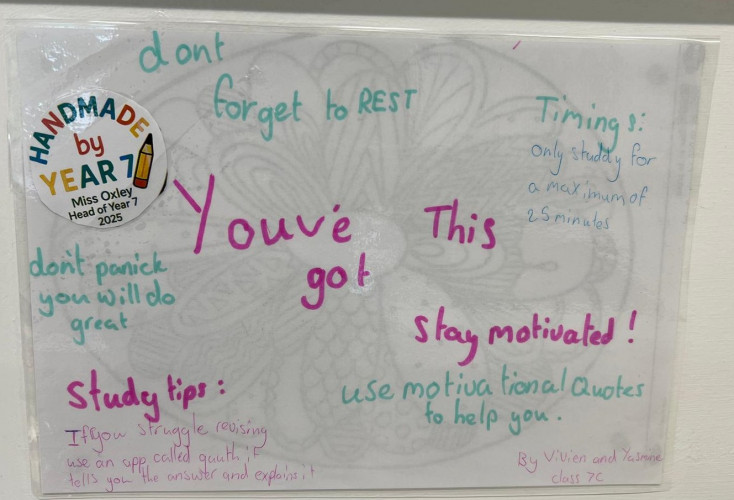 dont
forget to REST
HANDMADE
by
YEAR 7
Miss Oxley
Head of Year 7
2025
Timings:
only studdy for
a maximum of
25 minutes
Youv'e
got
This
don't panick
you will do
great
Stay motivated!
Study tips:
If you struggle revising
use an app called gauth if
tells you the answer and explains it
use motivational Quotes
to help you.
By Vivien and Yasmine
class 7C